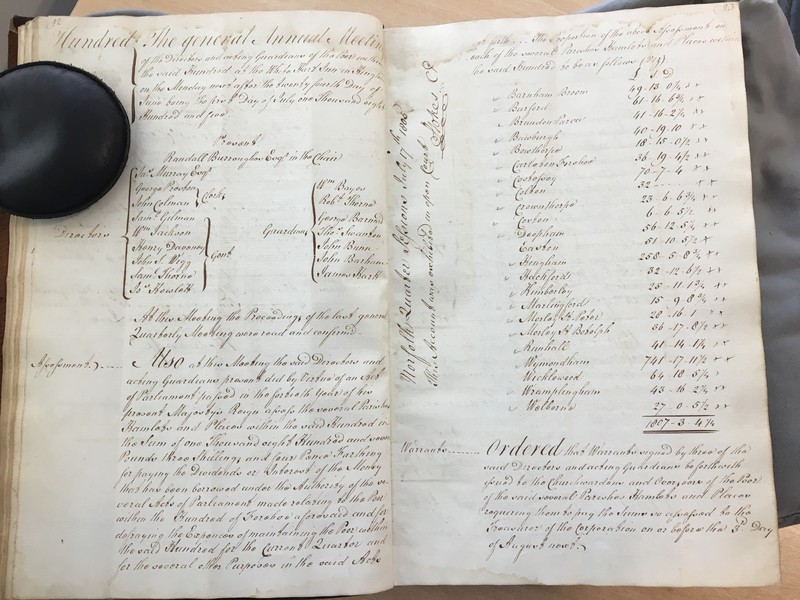 Hundred The general Annual Meeting
of the Directors and acting Guardians of the Poor within
the said Hundred at the White Hart Inn in Hingham
on the Monday next after the twenty fourth Day of
June being the first Day of July one Thousand eight
Hundred and five
Present
Randall Burroughes Esqr in the Chair
Directors
Jas. Murray Esqr
George Preston
John Colman
Saml. Gilman
Clerks
Wm Jackson
Henry Daveney
John S. Wigg
Saml. Thorne
Jos. Howlett
Gent
Guardians
Wm Bayes
Robt. Thorne
George Barnard
Thos. Swanton
John Bunn
John Barham
James Hark
At this Meeting the Proceedings of the last general
Quarterly Meeting were read and confirmed
Assessment
Also at this Meeting the said Directors and
acting Guardians present did by Virtue of an Act
of Parliament passed in the fortieth Year of his
present Majestys Reign assess the several Parishes
Hamlets and Places within the said Hundred in
the Sum of one Thousand eight Hundred and seven
Pounds three Shillings and four Pence Farthing
for paying the Dividends or Interest of the Money
that has been borrowed under the Authority of the se
veral Acts of Parliament made relating to the Poor
within the Hundred of Forehoe aforesaid and for
defraying the Expences of maintaining the Poor within
the said Hundred for the Current Quarter and
for the several other Purposes in the said Acts
Norfolk Quarter Sessions July
This Account was exhibited in open Court
83
The Proportion of the above Assessment on
each of the several Parishes Hamlets and Places within
the said Hundred to be as follows (Viz)
£ S D
Barnham Broom 49-13-0¼
Burford 61-16-6¾
Brandon Parva 41-16-2¼
Bawburgh 40-19-10
Bowthorpe 18-15-0½
Carleton Forehoe 36-19-4½
Costessey 70-7-4
Colton 32
Crownthorpe 23-6-6¾
Coston 6-6-5½
Deopham 56-12-5¼
Easton 51-10-5½
Hingham 258-5-8¾
Hackford 32-12-6½
Kimberley 25-11-1¾
Marlingford 15-9-8¾
Morley St Peter 28-16-1
Morley St Botolph 36-17-8½
Runhall 41-14-1¼
Wymondham 741-17-11½
Wicklewood 64-18-5¼
Wramplingham 43-16-2¾
Welborne 27-0-5½
1807-3-4¼
Warrants
Ordered that Warrants signed by three of the
said Directors and acting Guardians be forthwith
issued to the Churchwardens and Overseers of the Poor
of the said several Parishes Hamlets and Places
requiring them to pay the Sums so assessed to the
Treasurer of the Corporation on or before the 3d Day
of August next